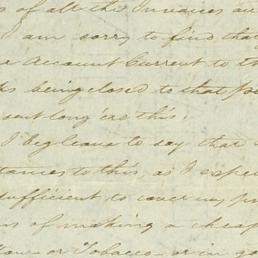 s of all the Invoices
I am sorry to find that
r Account Current to th
being closed to that pe
sent long 'ere this.
I beg leave to say that
tances to this, as I expe
sufficient to cover my pu
ns of making a cheap
or Tobacco or in go